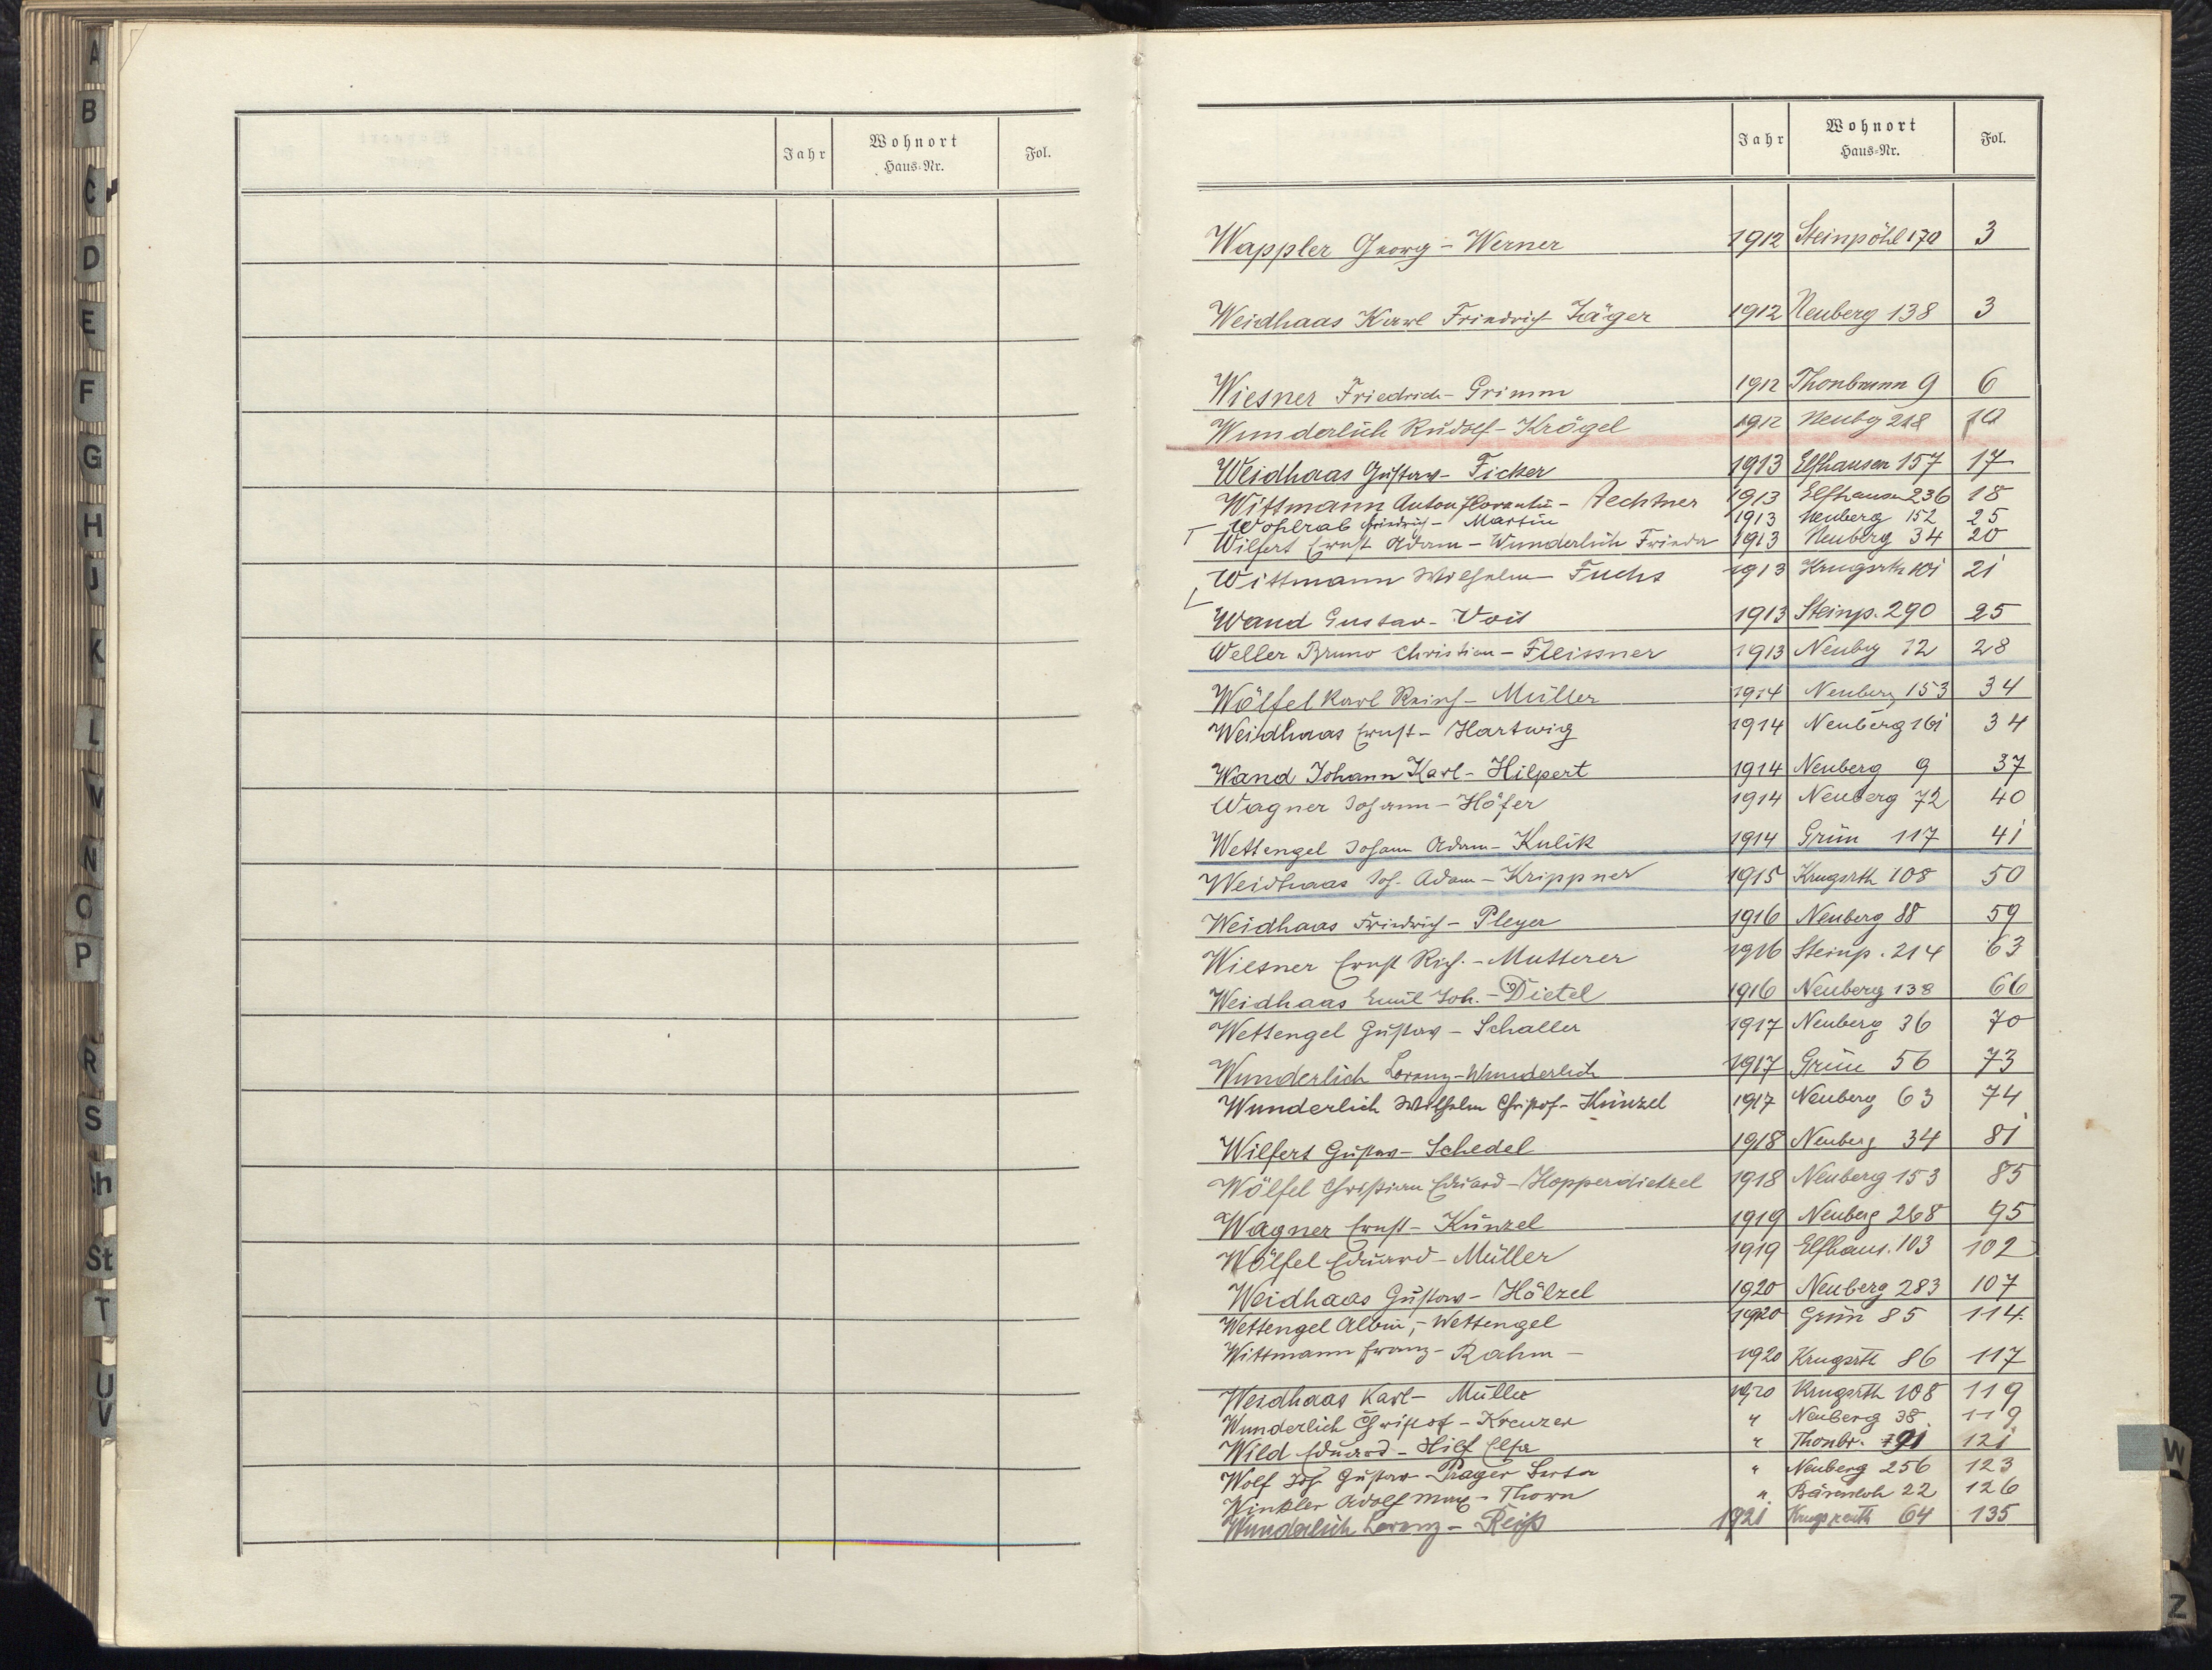 A
B
C
D
E
F
G
H
J
K
L
M
N
O
P
R
S
Sch
St
T
U
V
Jahr Wohnort Haus-Nr. Fol.
Jahr Wohnort Haus-Nr. Fol.
Wappler Georg - Werner 1912 Steinpöhl 170 3
Weidhaas Karl Friedrich Jäger 1912 Neuberg 138 3
Wiesner Friedrich - Grimm 1912 Thonbrunn 9 6
Wunderlich Rudolf - Krögel 1912 Neubg 218
Weidhaas Gustav - Ficker 1913 Elfhausen 157 17
Wittmann Anton Florentin - Aechtner 1913 Elfhausen 236 18
Wohlrab Friedrich - Martin 1913 Neuberg 152 25
Wilfert Ernst Adam - Wunderlich Frieda 1913 Neuberg 34 20
Wittmann Wilhelm - Fuchs 1913 Krugsrth 101 21
Wand Gustav - Voit 1913 Steinp. 290 25
Weller Bruno Christian - Fleissner 1913 Neubg 12 28
Wölfel Karl Reinh - Müller 1914 Neuberg 153 34
Weidhaas Ernst - Hartwig 1914 Neuberg 161 34
Wand Johann Karl - Hilpert 1914 Neuberg 9 37
Wagner Johann - Höfer 1914 Neuberg 72 40
Wettengel Johann Adam - Kulik 1914 Grün 117 41
Weidhaas Joh. Adam - Krippner 1915 Krugsrth 108 50
Weidhaas Friedrich - Pleyer 1916 Neuberg 88 59
Wiesner Ernst Rich. - Mutterer 1916 Steinp. 214 63
Weidhaas Emil Joh. - Dietel 1916 Neuberg 138 66
Wettengel Gustav - Schaller 1917 Neuberg 36 70
Wunderlich Lorenz - Wunderlich 1917 Grün 56 73
Wunderlich Wilhelm Christof - Künzel 1917 Neuberg 63 74
Wilfert Gustav - Schedel 1918 Neuberg 34 81
Wölfel Christian Eduard - Hopperdietzel 1918 Neuberg 153 85
Wagner Ernst - Künzel 1919 Neuberg 268 95
Wölfel Eduard - Müller 1919 Elfhaus. 103 102
Weidhaas Gustav - Hölzel 1920 Neuberg 283 107
Wettengel Albin, - Wettengel 1920 Grün 85 114.
Wittmann Franz - Rahm - 1920 Krugsrth 86 117
Weidhaas Karl - Müller 1920 Krugsrth 108 119
Wunderlich Christof - Kreuzer " Neuberg 38. 119
Wild Eduard - Hilf Elsa " Thonbr. 121
Wolf Joh Gustav - Prager Berta " Neuberg 256 123
Winkler Adolf Max - Thorn " Bärenloh 22 126
Wunderlich Lorenz - Reiß 1921 Krugsreuth 64 135
W
Z